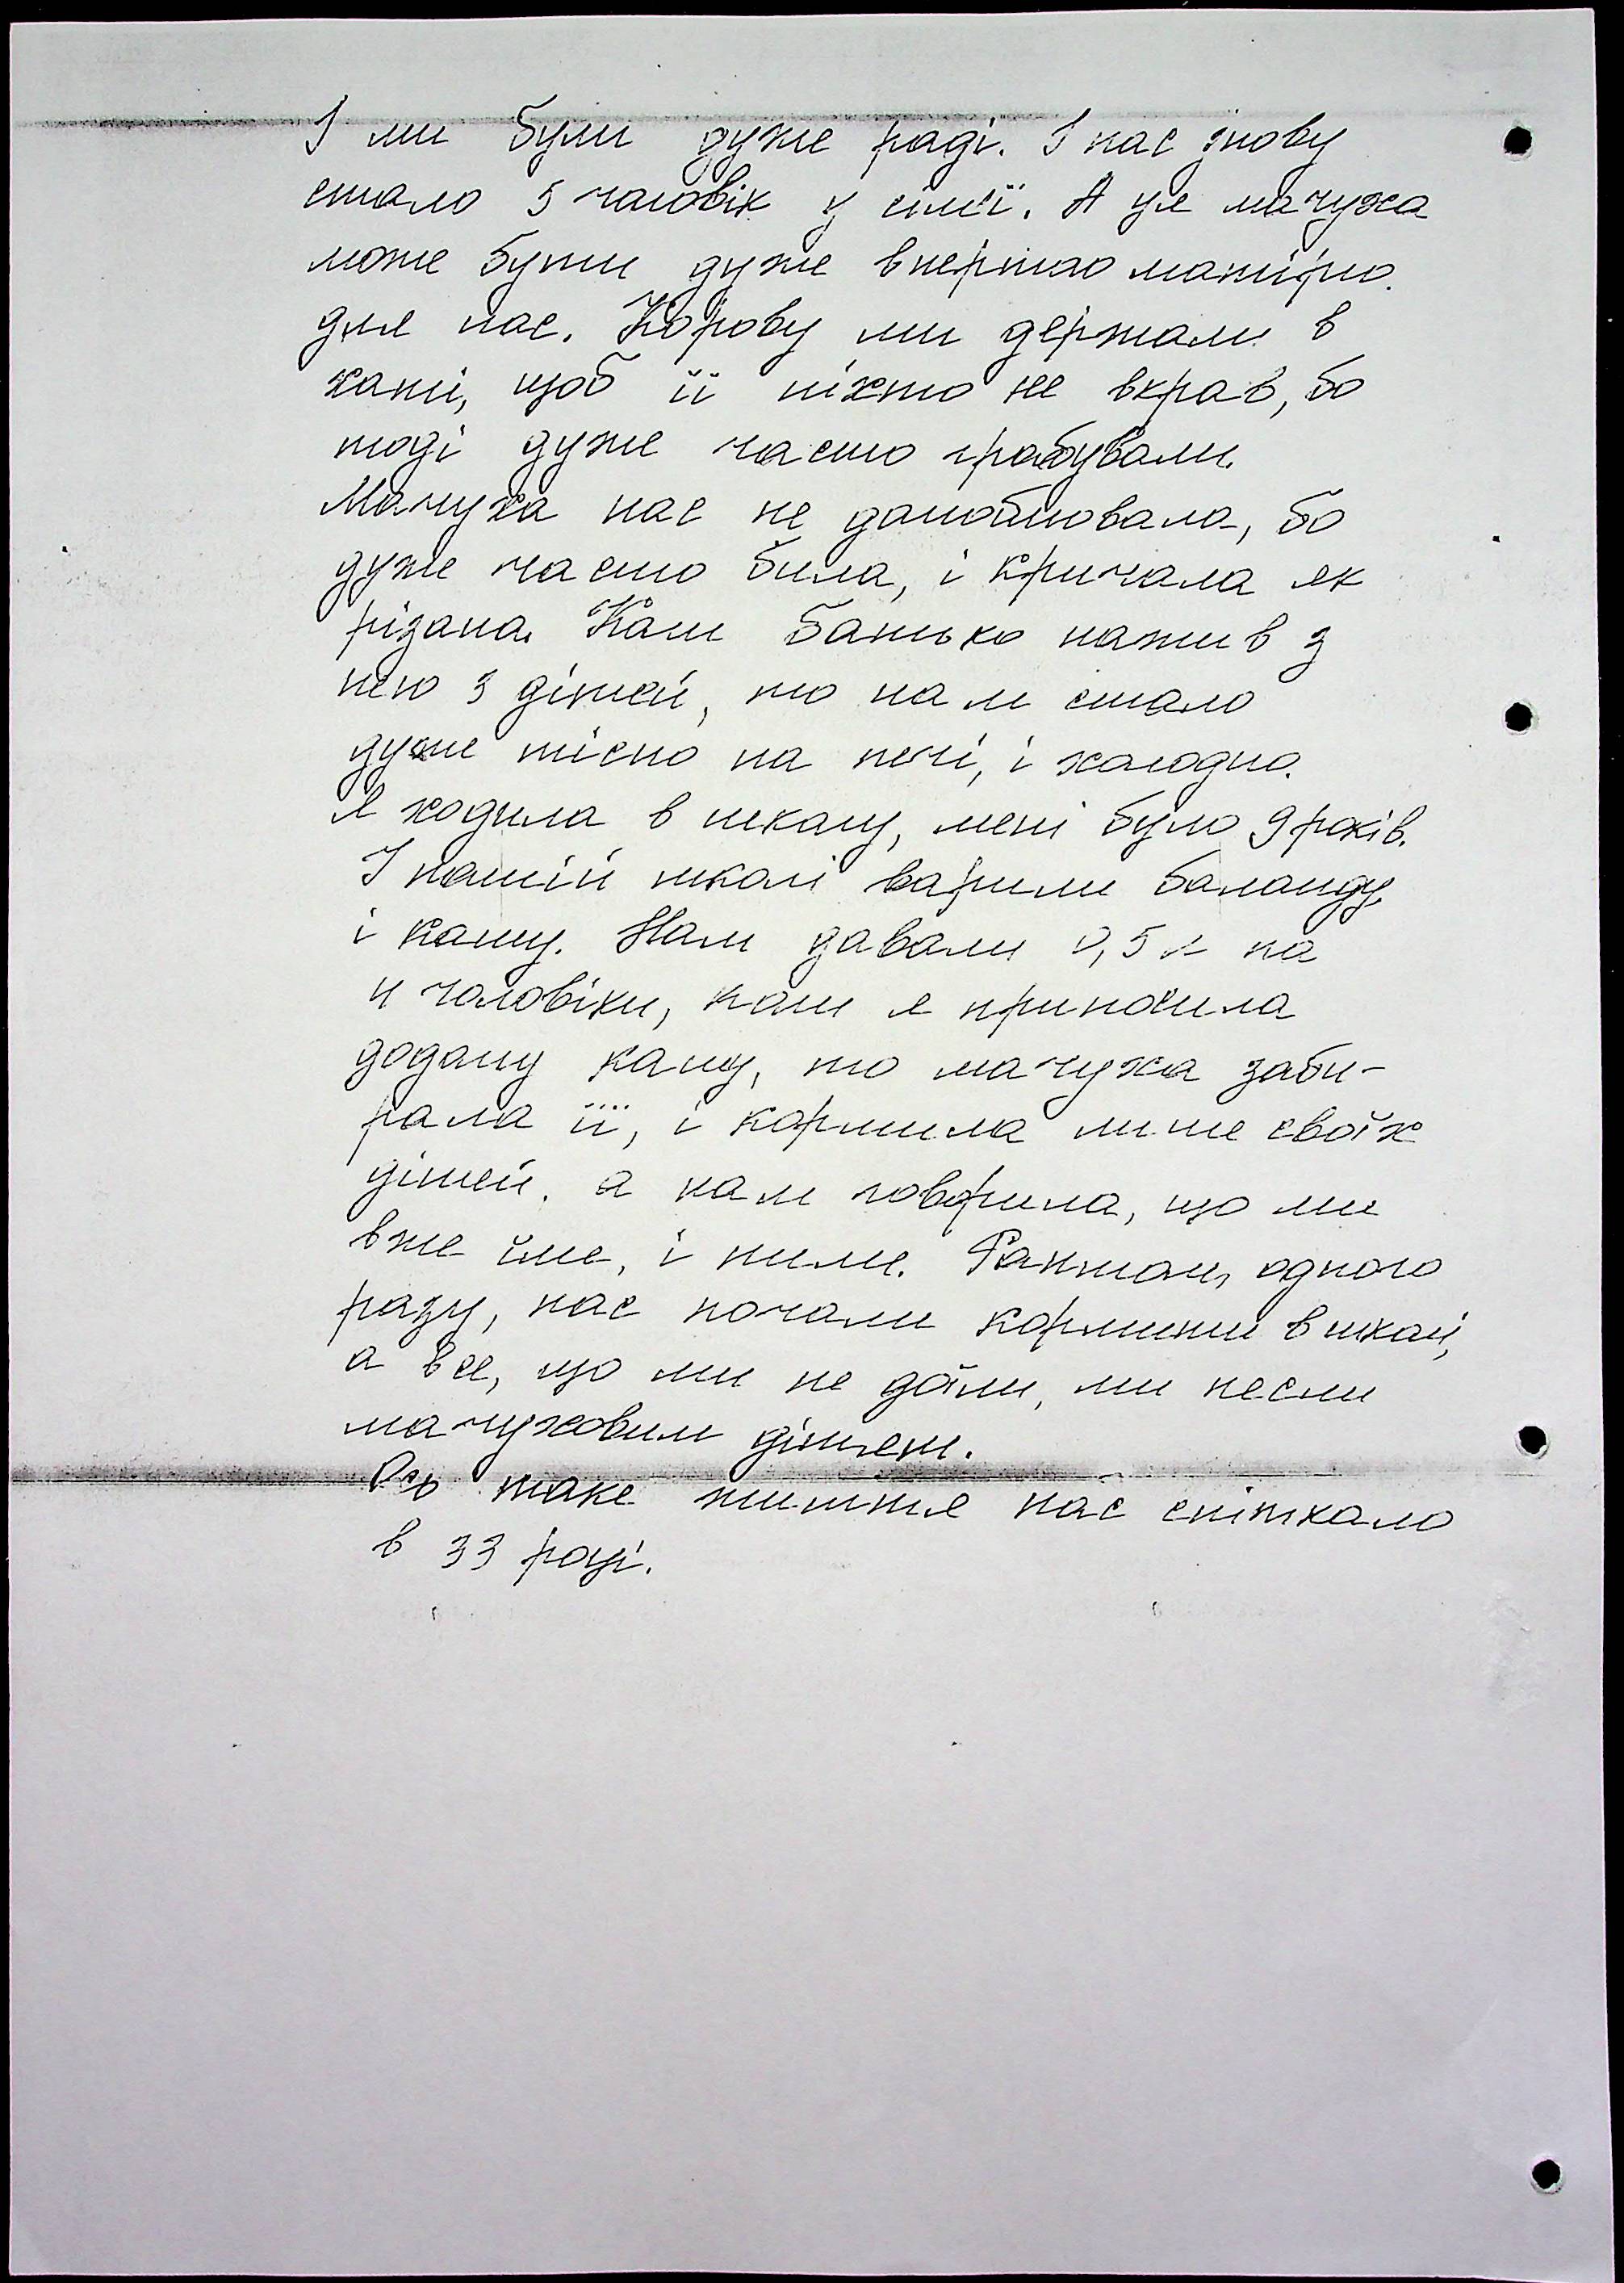 І ми були дуже раді. І нас знову
стало 5 чоловік у сім'ї. А це мачуха
може бути дуже впертою матір'ю
для нас. Корову ми держали в
хаті, щоб її ніхто не вкрав, бо
тоді дуже часто грабували.
Мачуха нас не долюблювала, бо
дуже часто била, і кричала як
різана. Наш батько нажив з
нею 3 дітей, то нам стало
дуже тісно на печі, і холодно.
Я ходила в школу, мені було 9 років.
У нашій школі варили баланду
і кашу. Нам давали 0,5 л на
4 чоловіки, коли я приносила
додому кашу, то мачуха заби-
рала її, і кормила лише своїх
дітей, а нам говорила, що ми
вже їли, і пили. одного
разу, нас почали кормити в школі,
а все, що ми не доїли, ми несли
мачуховим дітям.
Ось таке життя нас спіткало
в 33 році.